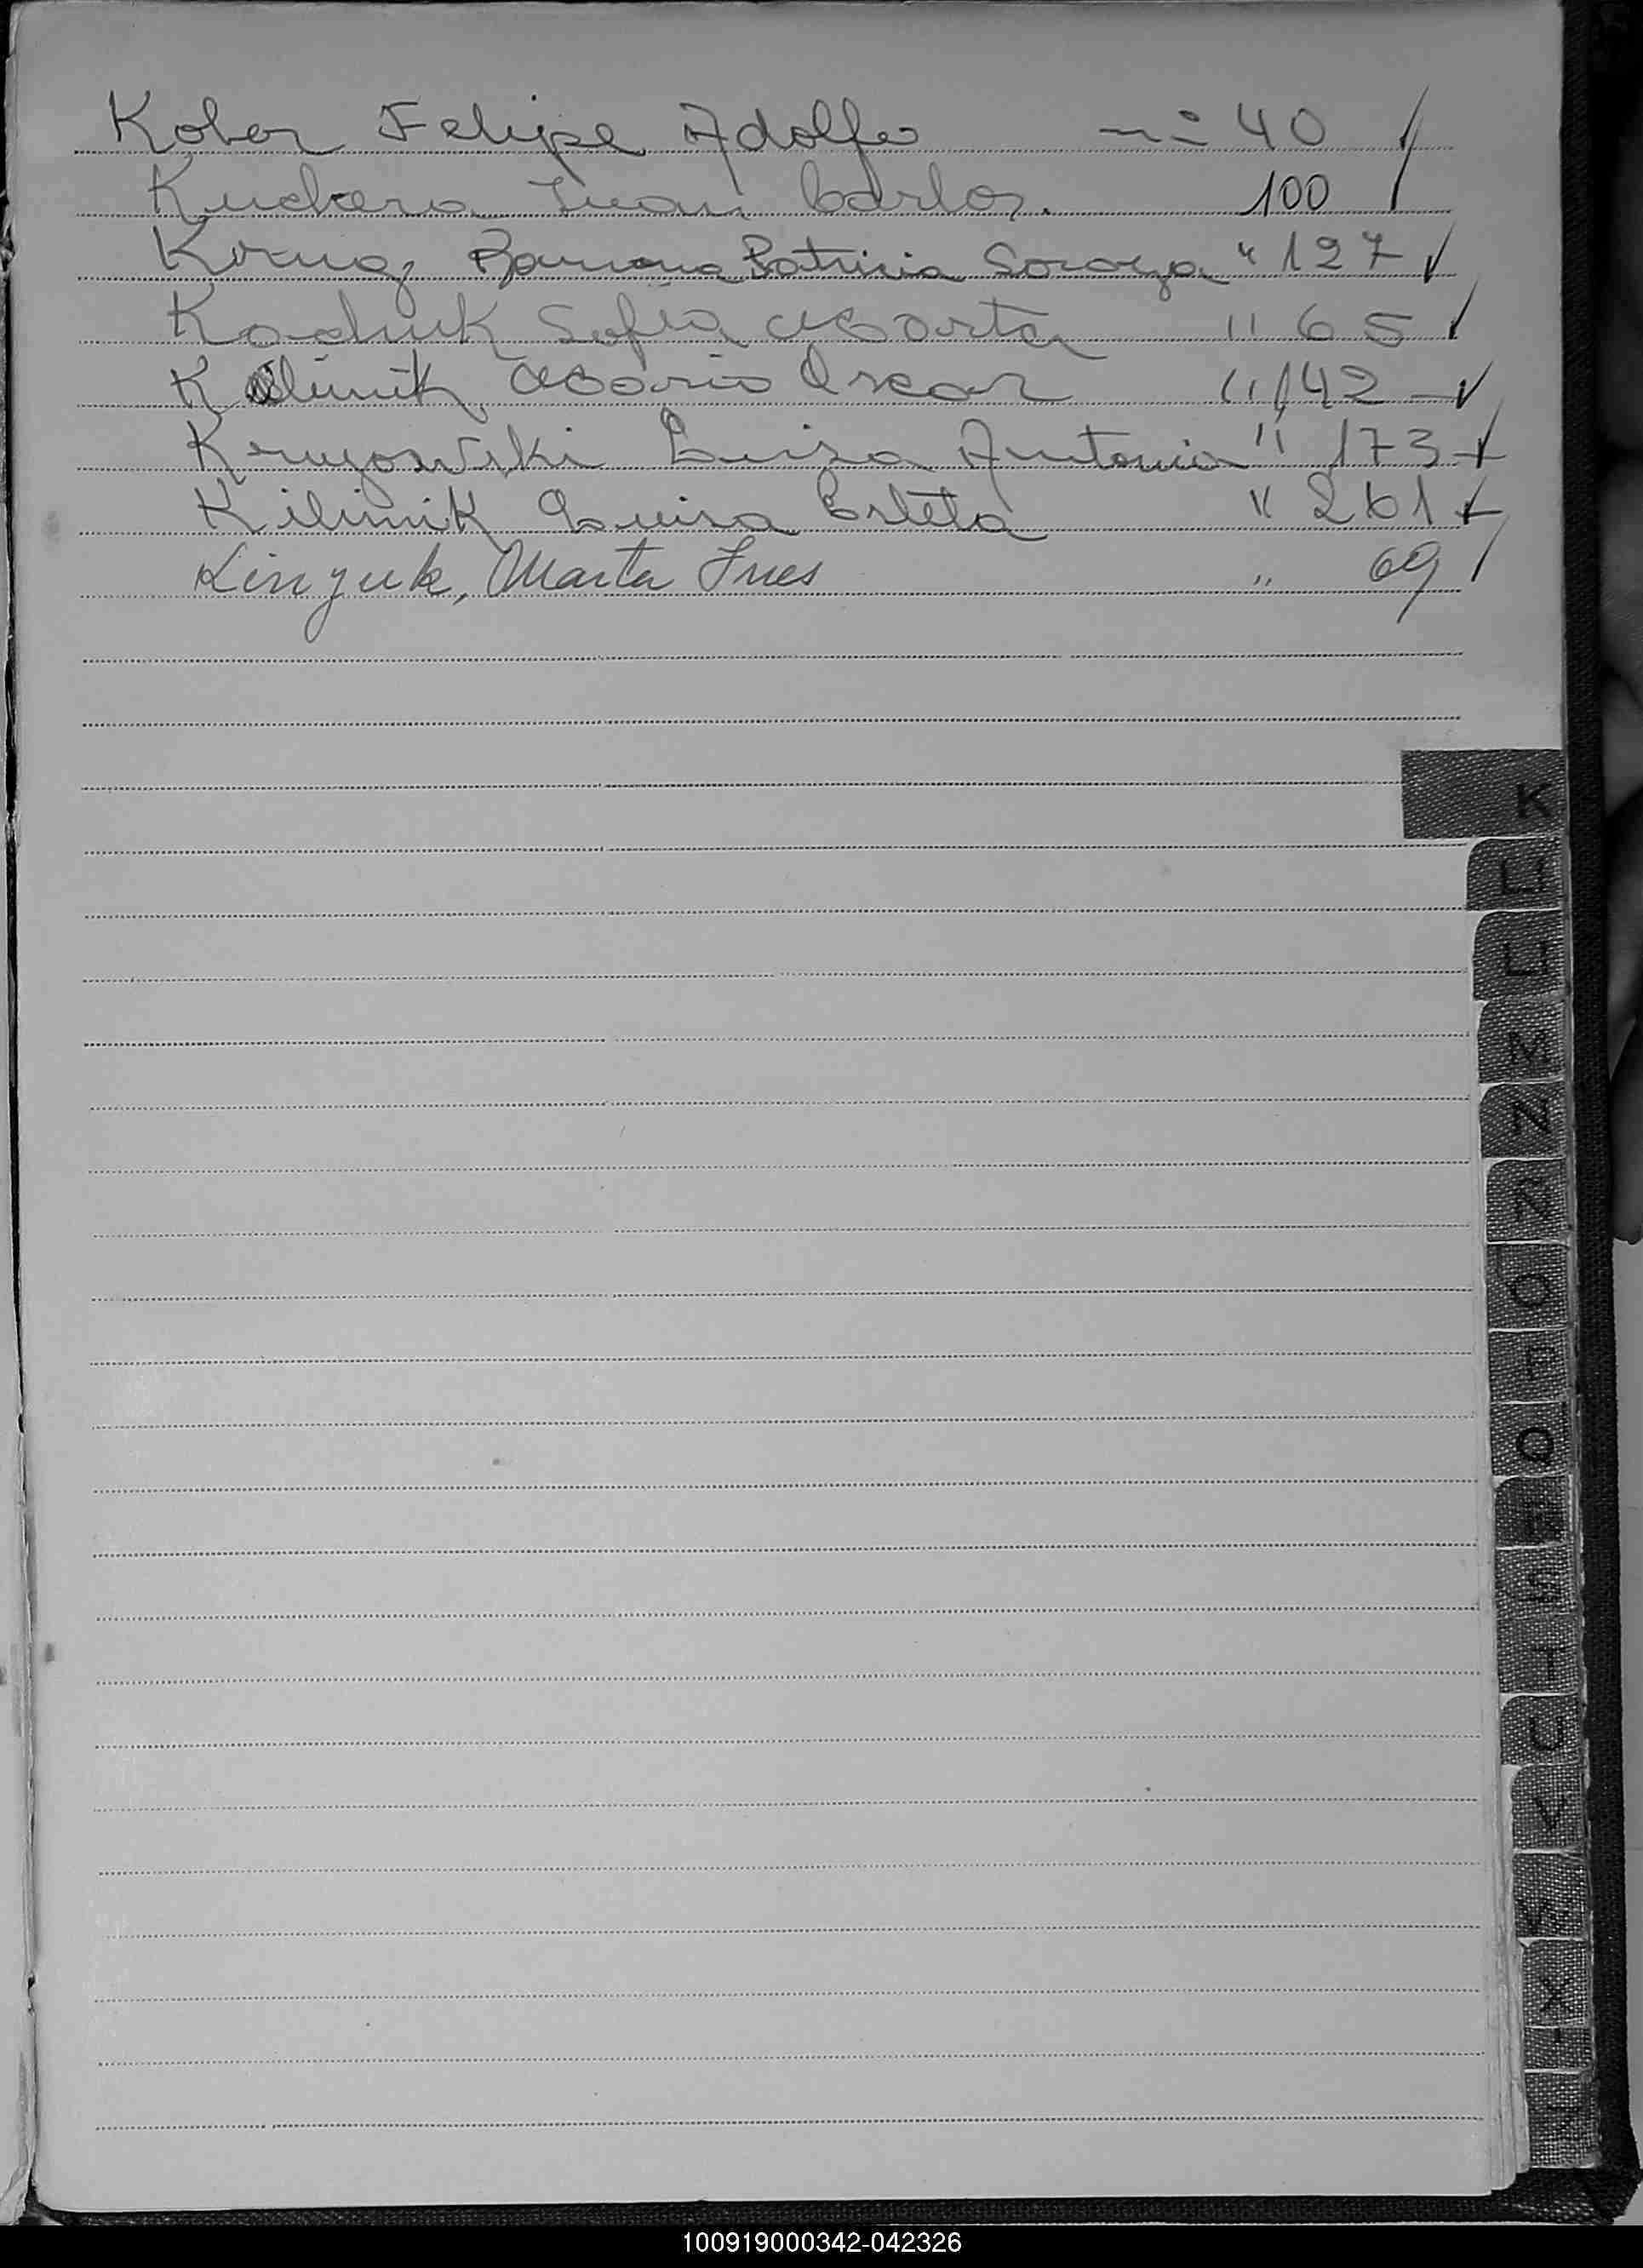 Kober Felipe Adolfo nº 40
Kuckera Juan Carlos. 100
Krug, Ramona Patricia Soraya " 127
Kachuk Sofia Marta " 65
Kilimik Mario Oscar " 142
Luisa Antonia " 173
Kilimik Luisa " 261
Kinzuk, Marta Ines " 69
K
LL
M
N
Ñ
O
P
Q
R
S
T
U
V
W
X
Y
Z
100919000342-042326